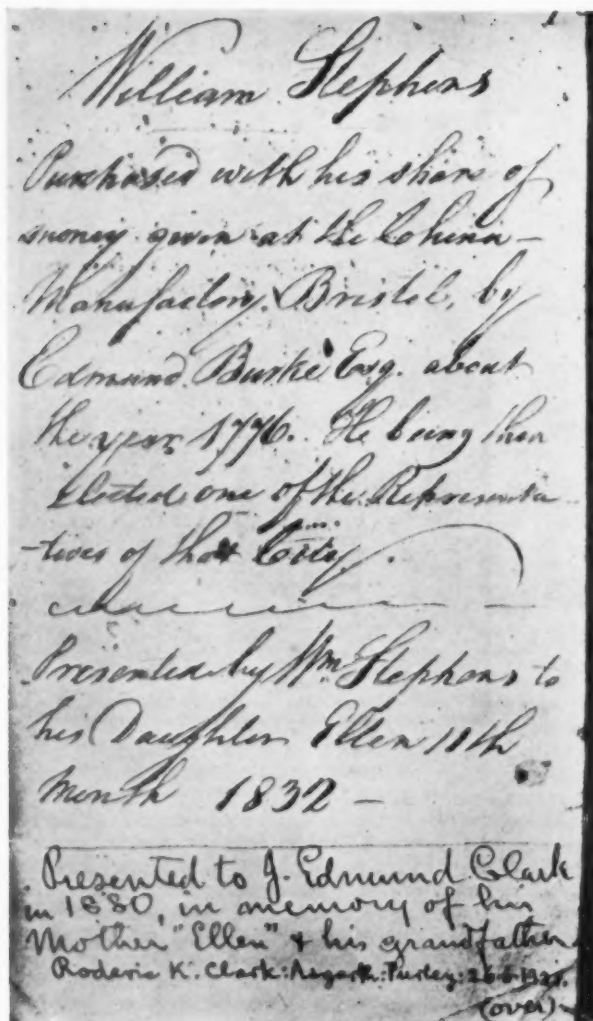 William Stephens
Purchased with his share of
money given at the China
Manufactory, Bristol, by
Edmund Burke Esq. about
the year 1776. He being then
elected one of the Representa
-tives of that City.
Presented by Wm Stephens to
his Daughter Ellen 11th
Month 1832 –
Presented to J. Edmund Clark
in 1880, in memory of his
Mother "Ellen" & his grandfather
Roderic K. Clark: Purley:
(over)